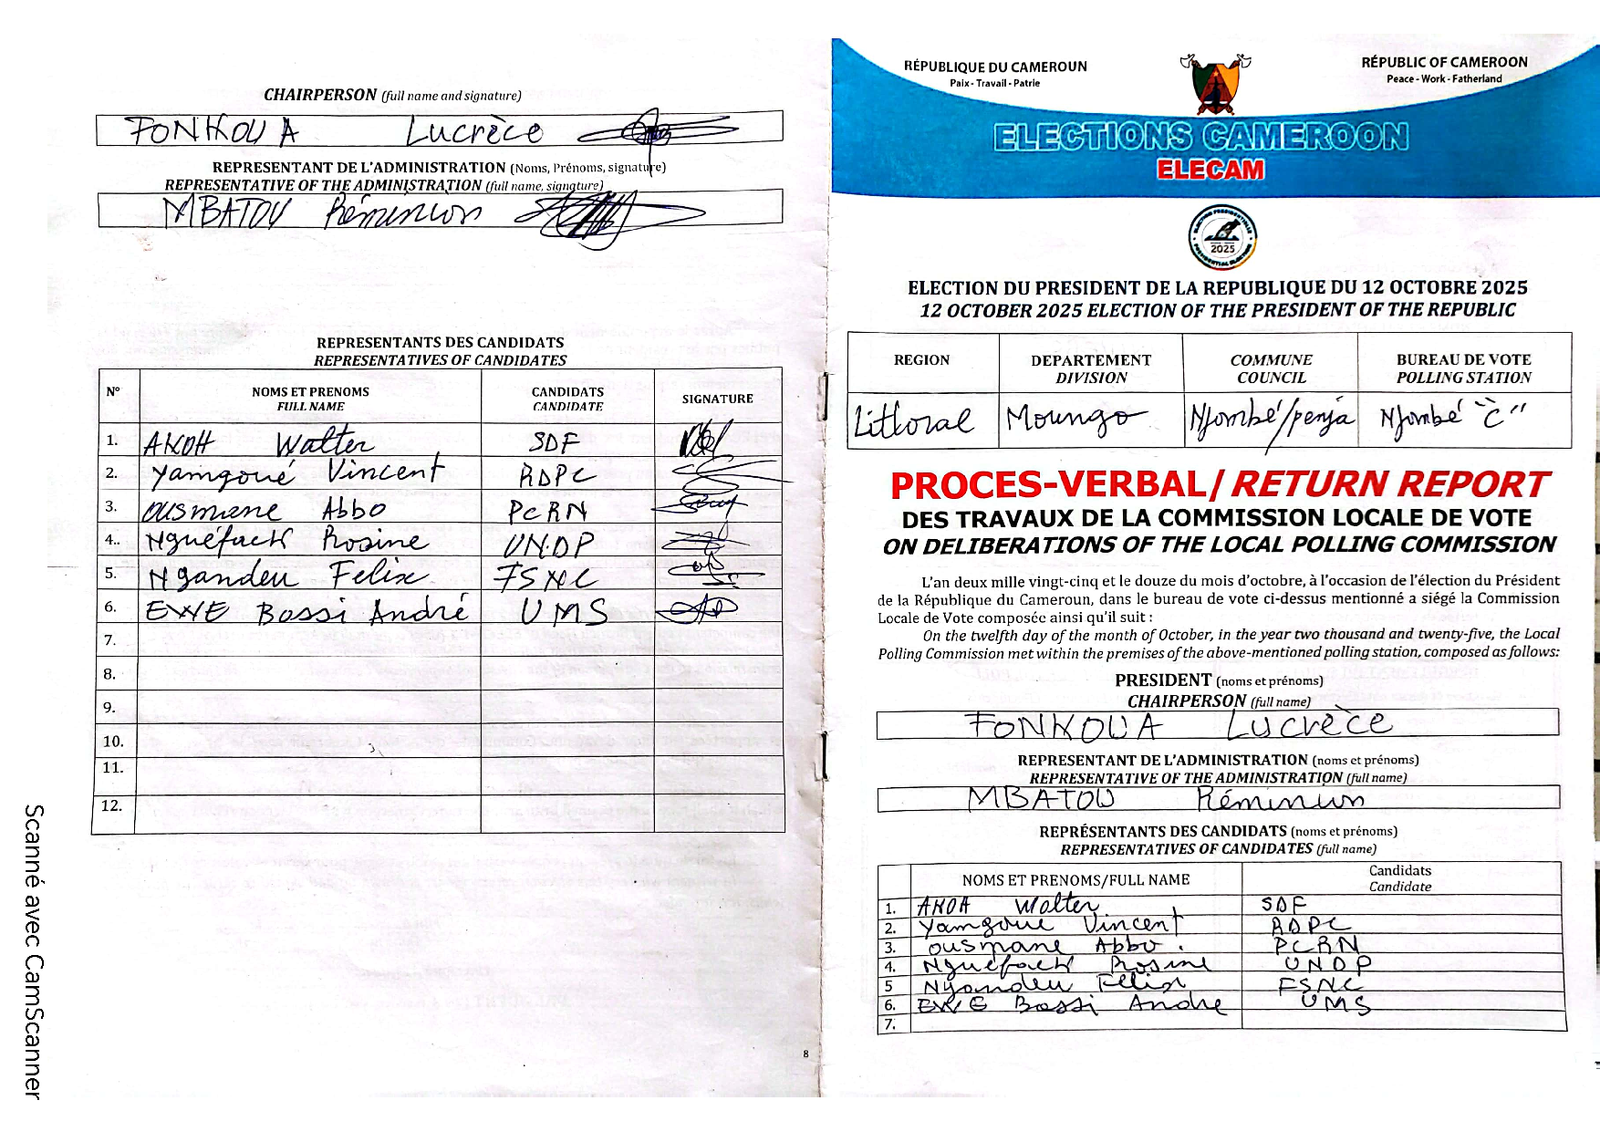 CHAIRPERSON (full name and signature)
FONKOUA Lucrèce
REPRESENTANT DE L'ADMINISTRATION (Noms, Prénoms, signature)
REPRESENTATIVE OF THE ADMINISTRATION (full name, signature)
MBATOU Réminion
REPRESENTANTS DES CANDIDATS
REPRESENTATIVES OF CANDIDATES
N° NOMS ET PRENOMS CANDIDATS SIGNATURE
FULL NAME CANDIDATE
1. AKOH Walter SDF
2. Yamgoué Vincent RDPC
3. Ousmane Abbo PCRN
4.. Nguéfack Rosine UNDP
5. Ngandeu Felix FSNC
6. EWE Bossi André UMS
7.
8.
9.
10.
11.
12.
8
Scanné avec CamScanner
RÉPUBLIQUE DU CAMEROUN
Paix - Travail - Patrie
RÉPUBLIC OF CAMEROON
Peace - Work - Fatherland
ELECTIONS CAMEROON
ELECAM
ELECTION PRESIDENTIELLE
2025
PRESIDENTIAL ELECTION
ELECTION DU PRESIDENT DE LA REPUBLIQUE DU 12 OCTOBRE 2025
12 OCTOBER 2025 ELECTION OF THE PRESIDENT OF THE REPUBLIC
REGION DEPARTEMENT COMMUNE BUREAU DE VOTE
DIVISION COUNCIL POLLING STATION
Littoral Moungo Njombé/penja Njombé "C"
PROCES-VERBAL/ RETURN REPORT
DES TRAVAUX DE LA COMMISSION LOCALE DE VOTE
ON DELIBERATIONS OF THE LOCAL POLLING COMMISSION
L'an deux mille vingt-cinq et le douze du mois d'octobre, à l'occasion de l'élection du Président
de la République du Cameroun, dans le bureau de vote ci-dessus mentionné a siégé la Commission
Locale de Vote composée ainsi qu'il suit :
On the twelfth day of the month of October, in the year two thousand and twenty-five, the Local
Polling Commission met within the premises of the above-mentioned polling station, composed as follows:
PRESIDENT (noms et prénoms)
CHAIRPERSON (full name)
FONKOUA Lucrèce
REPRESENTANT DE L'ADMINISTRATION (noms et prénoms)
REPRESENTATIVE OF THE ADMINISTRATION (full name)
MBATOU Réminion
REPRÉSENTANTS DES CANDIDATS (noms et prénoms)
REPRESENTATIVES OF CANDIDATES (full name)
NOMS ET PRENOMS/FULL NAME Candidats
Candidate
1. AKOA Walter SDF
2. Yamgoue Vincent RDPC
3. Ousmane Abbo . PCRN
4. Nguefack Rosine UNDP
5 Ngandeu Felix FSNC
6. EWE Bossi Andre UMS
7.